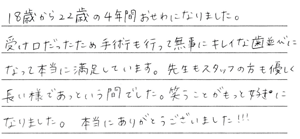 18歳から22歳の4年間おせわになりました。
受け口だったため手術も行って無事にキレイな歯並びに
なって本当に満足しています。先生もスタッフの方も優しく
長い様であっという間でした。笑うことがもっと好きに
なりました。 本当にありがとうございました!!!